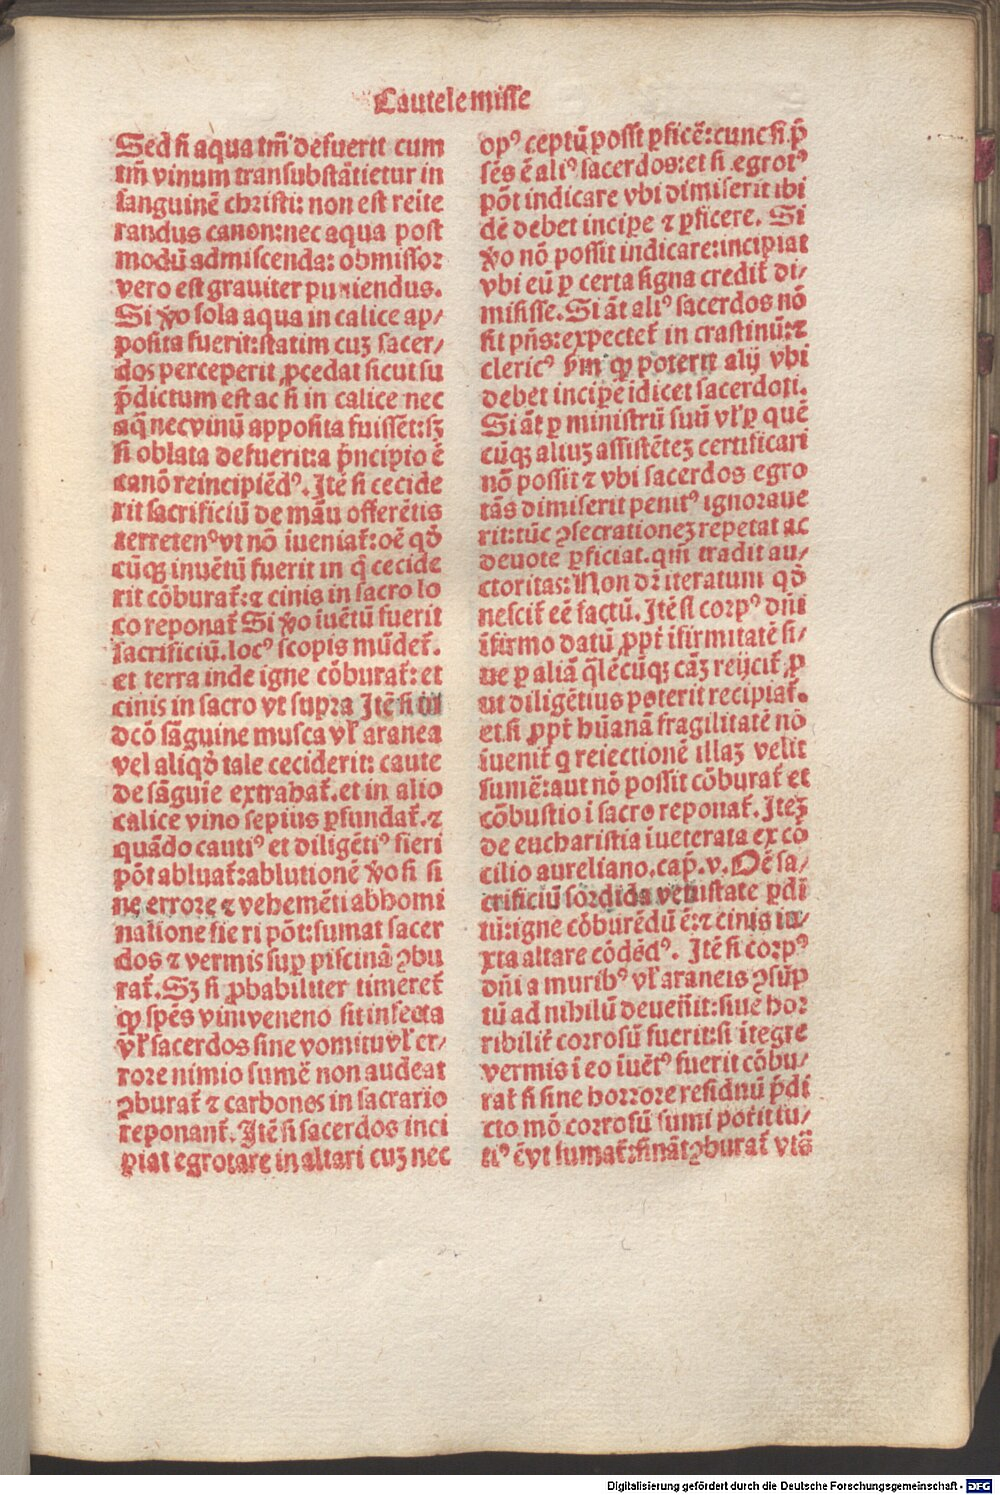 Cautele misse
Sed si aqua tm̄ defuerit cum
tm̄ vinum transubstātietur in
sanguinē christi: non est reite
randus canon:nec aqua post
modū admiscenda: obmissor
vero est grauiter puniendus.
Si ꝟo sola aqua in calice ap/
posita fuerit:statim cuꝫ sacer/
dos perceperit ꝓcedat sicut su
p̄dictum est ac si in calice nec
aq̄ nec vinū apposita fuissēt:sꝫ
si oblata defuerit:a p̄ncipio ē
canō reincipiēdꝰ. Itē si cecide
rit sacrificiū de manu offerētis
terretenꝰ vt nō īueniat᷑: oē qđ
cūqꝫ inuētū fuerit in q̄ cecide
rit cōburat᷑:⁊ cinis in sacro lo
co reponat᷑ Si ꝟo īuētū fuerit
sacrificiū. locꝰ scopis mūdet᷑.
et terra inde igne cōburat᷑: et
cinis in sacro vt supra Itē si in
dcō sāguine musca vł aranea
vel aliqđ tale ceciderit: caute
de sāguīe extrahat᷑. et in alio
calice vino sepius ꝑfundat᷑. ⁊
quādo cautiꝰ et diligētiꝰ fieri
pōt abluat᷑:ablutionē ꝟo si si
ne errore ⁊ vehemēti abhomi
natione fieri pōt:sumat sacer
dos ⁊ vermis sup̄ piscinā ꝯbu
rat᷑. Sꝫ si ꝓbabiliter timeret᷑
ꝙ spēs vini veneno sit infecta
vł sacerdos sine vomitu vł er/
rore nimio sumē non audeat
ꝯburat᷑ ⁊ carbones in sacrario
reponant᷑. Itē si sacerdos inci
piat egrotare in altari cuꝫ nec
opꝰ ceptū possit ꝑficē:cunc si p̄
sēs ē aliꝰ sacerdos:et si egrotꝰ
pōt indicare vbi dimiserit ibi
dē debet incipe ⁊ ꝑficere. Si
ꝟo nō possit indicare:incipiat
vbi eū ꝑ certa signa credit᷑ di/
misisse. Si āt aliꝰ sacerdos nō
sit pn̄s:expectet᷑ in crastinū:⁊
clericꝰ ꝙ poterit alij vbi
debet incipe idicet sacerdoti.
Si āt ꝑ ministrū suū vł ꝑ quē
cūqꝫ aliuꝫ assistētez certificari
nō possit ⁊ vbi sacerdos egro
tās dimiserit penitꝰ ignoraue
rit:tūc ꝯsecrationez repetat ac
deuote ꝑficiat. qm̄ tradit au/
ctoritas: Non dr̄ iteratum qđ
nescit᷑ eē factū. Itē si corpꝰ dn̄i
īfirmo datū ꝓpt᷑ īfirmitatē si/
ue ꝑ aliā q̄lēcūqꝫ cāꝫ reijcit᷑ ꝓ
ut diligētius poterit recipiat᷑.
et si ꝓpt᷑ hūanā fragilitatē nō
īuenit᷑ q reiectionē illaꝫ velit
sumē:aut nō possit cōburat᷑ et
cōbustio ī sacro reponat᷑. Iteꝫ
de eucharistia īueterata ex cō
cilio aureliano. cap̄. v. Oē sa/
crificiū sordida vetustate ꝑdi
tū:igne cōburēdū ē:⁊ cinis iu/
xta altare cōdēdꝰ. Itē si corpꝰ
dn̄i a muribꝰ vł araneis ꝯsūp
tū ad nihilū deuen̄it: siue hor
ribilit᷑ corrosū fuerit:si ītegre
vermis ī eo īuētꝰ fuerit cōbu/
rat᷑ si sine horrore residuū p̄di
cto mō corrosū sumi potit tu/
tiꝰ ē vt sumat᷑: ꝯburat᷑
Digitalisierung gefördert durch die Deutsche Forschungsgemeinschaft - DFG